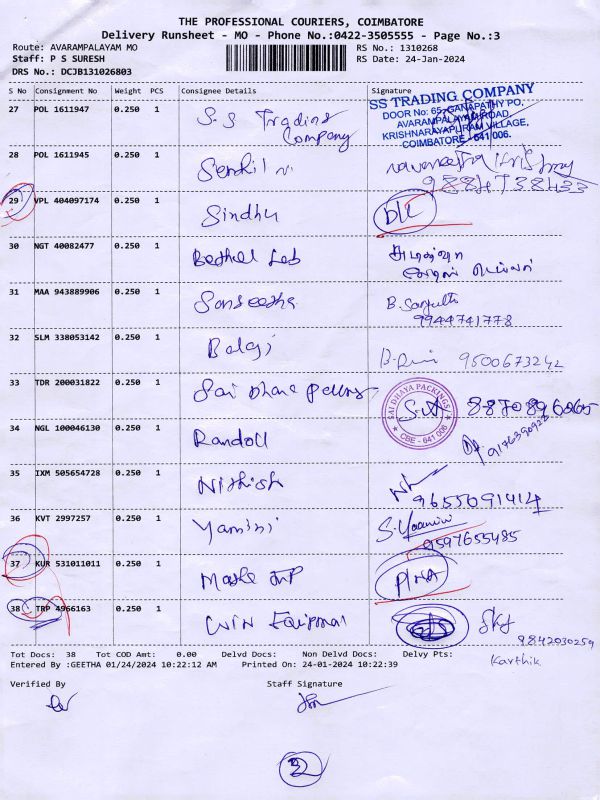 THE PROFESSIONAL COURIERS, COIMBATORE
Delivery Runsheet - MO - Phone No.:0422-3505555 - Page No.:3
Route: AVARAMPALAYAM MO
RS No.: 1310268
Staff: P S SURESH
RS Date: 24-Jan-2024
DRS No.: DCJB131026803
S No Consignment No Weight PCS Consignee Details Signature
27 POL 1611947 0.250 1 S.S Trading Company
SS TRADING COMPANY
DOOR No: 65, GANAPATHY PO,
AVARAMPALAYAM ROAD,
KRISHNARAYAPURAM VILLAGE,
COIMBATORE - 641 006.
28 POL 1611945 0.250 1 Senthil n
29 VPL 404097174 0.250 1 Sindhu D/L
30 NGT 40082477 0.250 1 Bethel Lab
31 MAA 943889906 0.250 1 Sangeetha
9944741778
32 SLM 338053142 0.250 1 Balaji 9500673242
33 TDR 200031822 0.250 1 Sai Dhaya
SAI DHAYA PACKINGS
CBE - 641 006
34 NGL 100046130 0.250 1 Randoll
35 IXM 505654728 0.250 1 Nithish
9655091414
36 KVT 2997257 0.250 1 Yamini S. Yaamini
9597655485
37 KUR 531011011 0.250 1
38 TRP 4966163 0.250 1 Win
9842030259
Karthik
Tot Docs: 38 Tot COD Amt: 0.00 Delvd Docs: Non Delvd Docs: Delvy Pts:
Entered By :GEETHA 01/24/2024 10:22:12 AM Printed On: 24-01-2024 10:22:39
Verified By Staff Signature
2